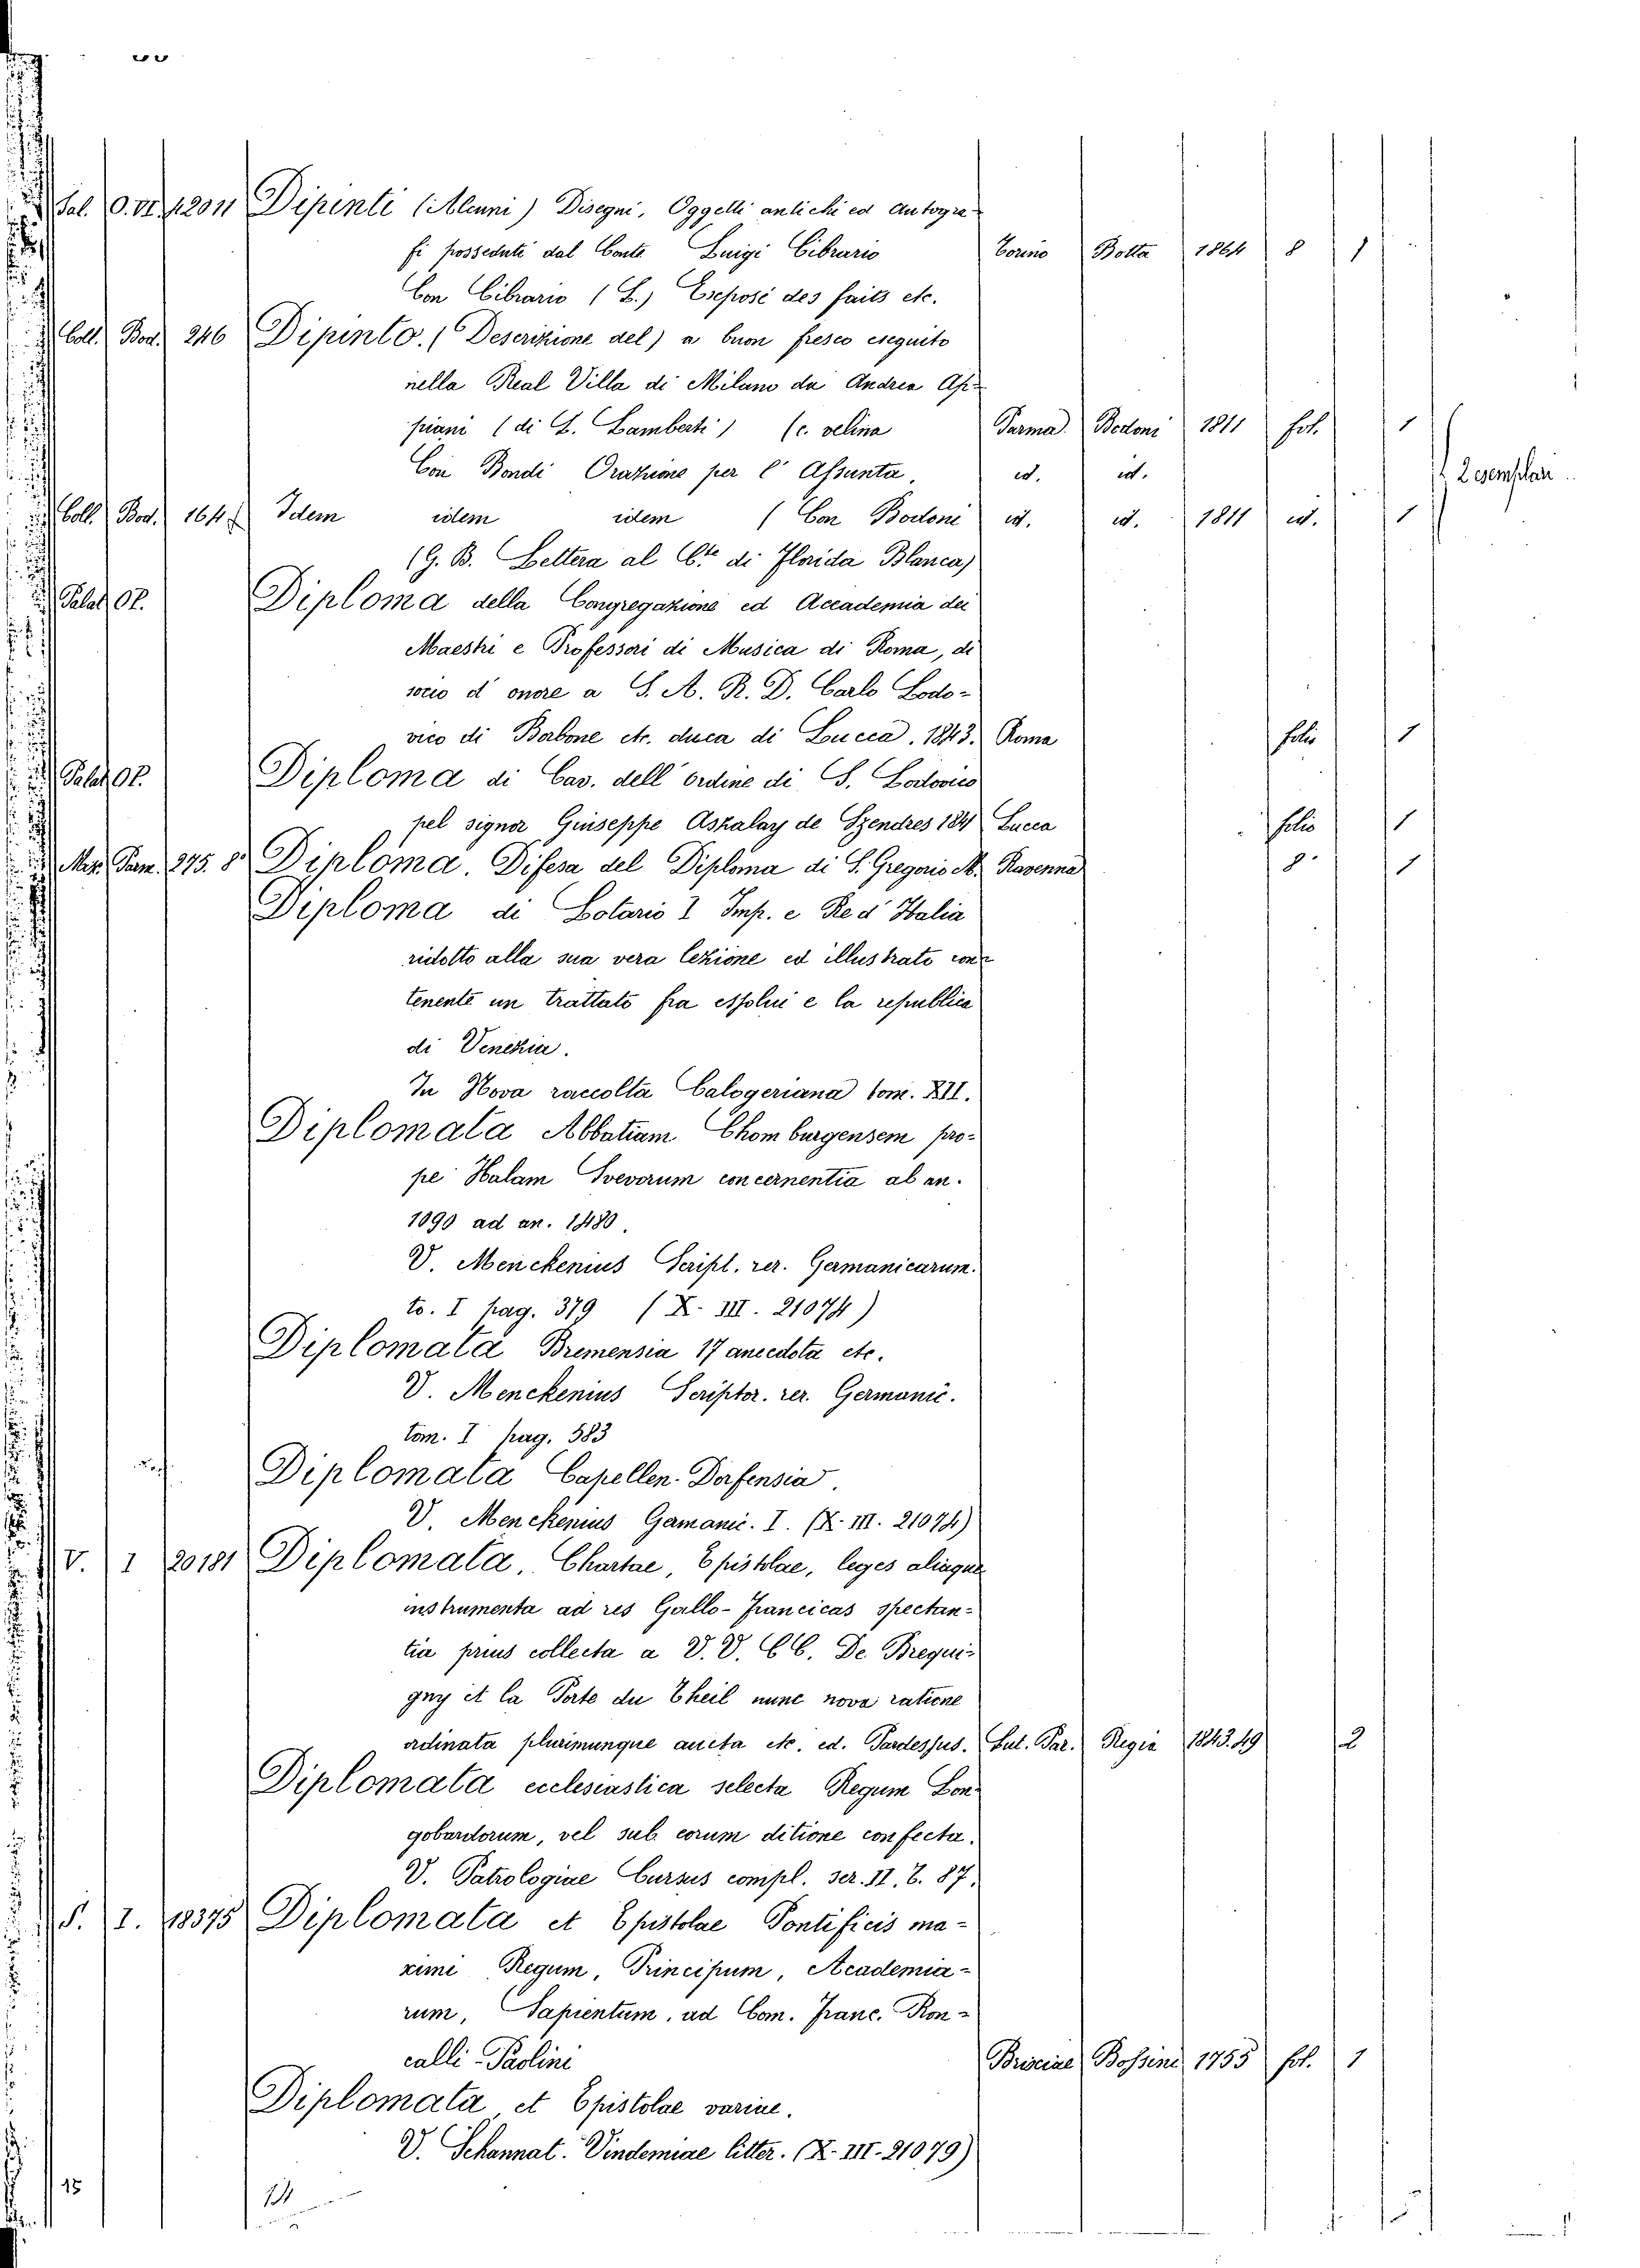 Sal. O. VI. 12011 Dipinti (Alcuni) Disegni, Oggetti antichi ed autogra-
fi posseduti dal Conte Luigi Cibrario Torino Botta 1864 8 1
Con Cibrario (L.) Esposé des faits etc.
Coll. Bod. 246 Dipinto. (Descrizione del) a buon fresco eseguito
nella Real Villa di Milano da Andrea Ap-
piani (di L. Lamberti) (c. velina Parma. Bodoni 1811 fol. 1
Con Bondi Orazione per l' Assunta, id. id. 2 esemplari
Coll. Bod. 164 Idem idem idem (Con Bodoni id. id. 1811 id. 1
(G. B. Lettera al Cte di Florida Blanca)
Palat. Diploma della Congregazione ed Accademia dei
Maestri e Professori di Musica di Roma, di
socio d'onore a S. A. R. D. Carlo Lodo-
vico di Borbone etc. duca di Lucca. 1843. Roma folio 1
Palat. Diploma di Cav. dell' ordine di S. Lodovico
pel signor Giuseppe Aszalay de Szendres 184 Lucca folio 1
Parm. 275. 8º Diploma. Difesa del Diploma di S. Gregorio M. Ravenna 8º 1
Diploma di Lotario I Imp. e Re d' Italia
ridotto alla sua vera lezione ed illustrato con-
tenente un trattato fra esso lui e la republica
di Venezia.
In Nova raccolta Calogeriana tom. XII.
Diplomata Abbatiam Chomburgensem pro-
pe Halam Svevorum concernentia ab an.
1090 ad an. 1480.
V. Menckenius Script. rer. Germanicarum.
to. I pag. 379 (X. III. 21074)
Diplomata Bremensia 17 anecdota etc.
V. Menckenius Scriptor. rer. Germanic.
tom. I pag. 583
Diplomata Capellen-Dorfensia.
V. Menckenius Gamanic. I. (X. III. 21074)
V. I 20181 Diplomata, Chartae, Epistolae, leges aliaque
instrumenta ad res Gallo-Francicas spectan-
tia prius collecta a V. V. C C. De Brequi-
gny et la Porte du Theil nunc nova ratione
ordinata plurimunque aucta etc. ed. Pardessus. Lut. Par. Regia 1843.49 2
Diplomata ecclesiastica selecta Regum Lon-
gobardorum, vel sub eorum ditione confecta.
V. Patrologiae Cursus compl. ser. II. T. 87.
S. I. 18375 Diplomata et Epistolae Pontificis ma-
ximi Regum, Principum, Academia-
rum, Sapientum, ad Com. Franc. Ron-
calli-Paolini Brixiae Bossini 1755 fol. 1
Diplomata et Epistolae variae.
V. Schannat. Vindemiae litter. (X. III. 21079)
15 14